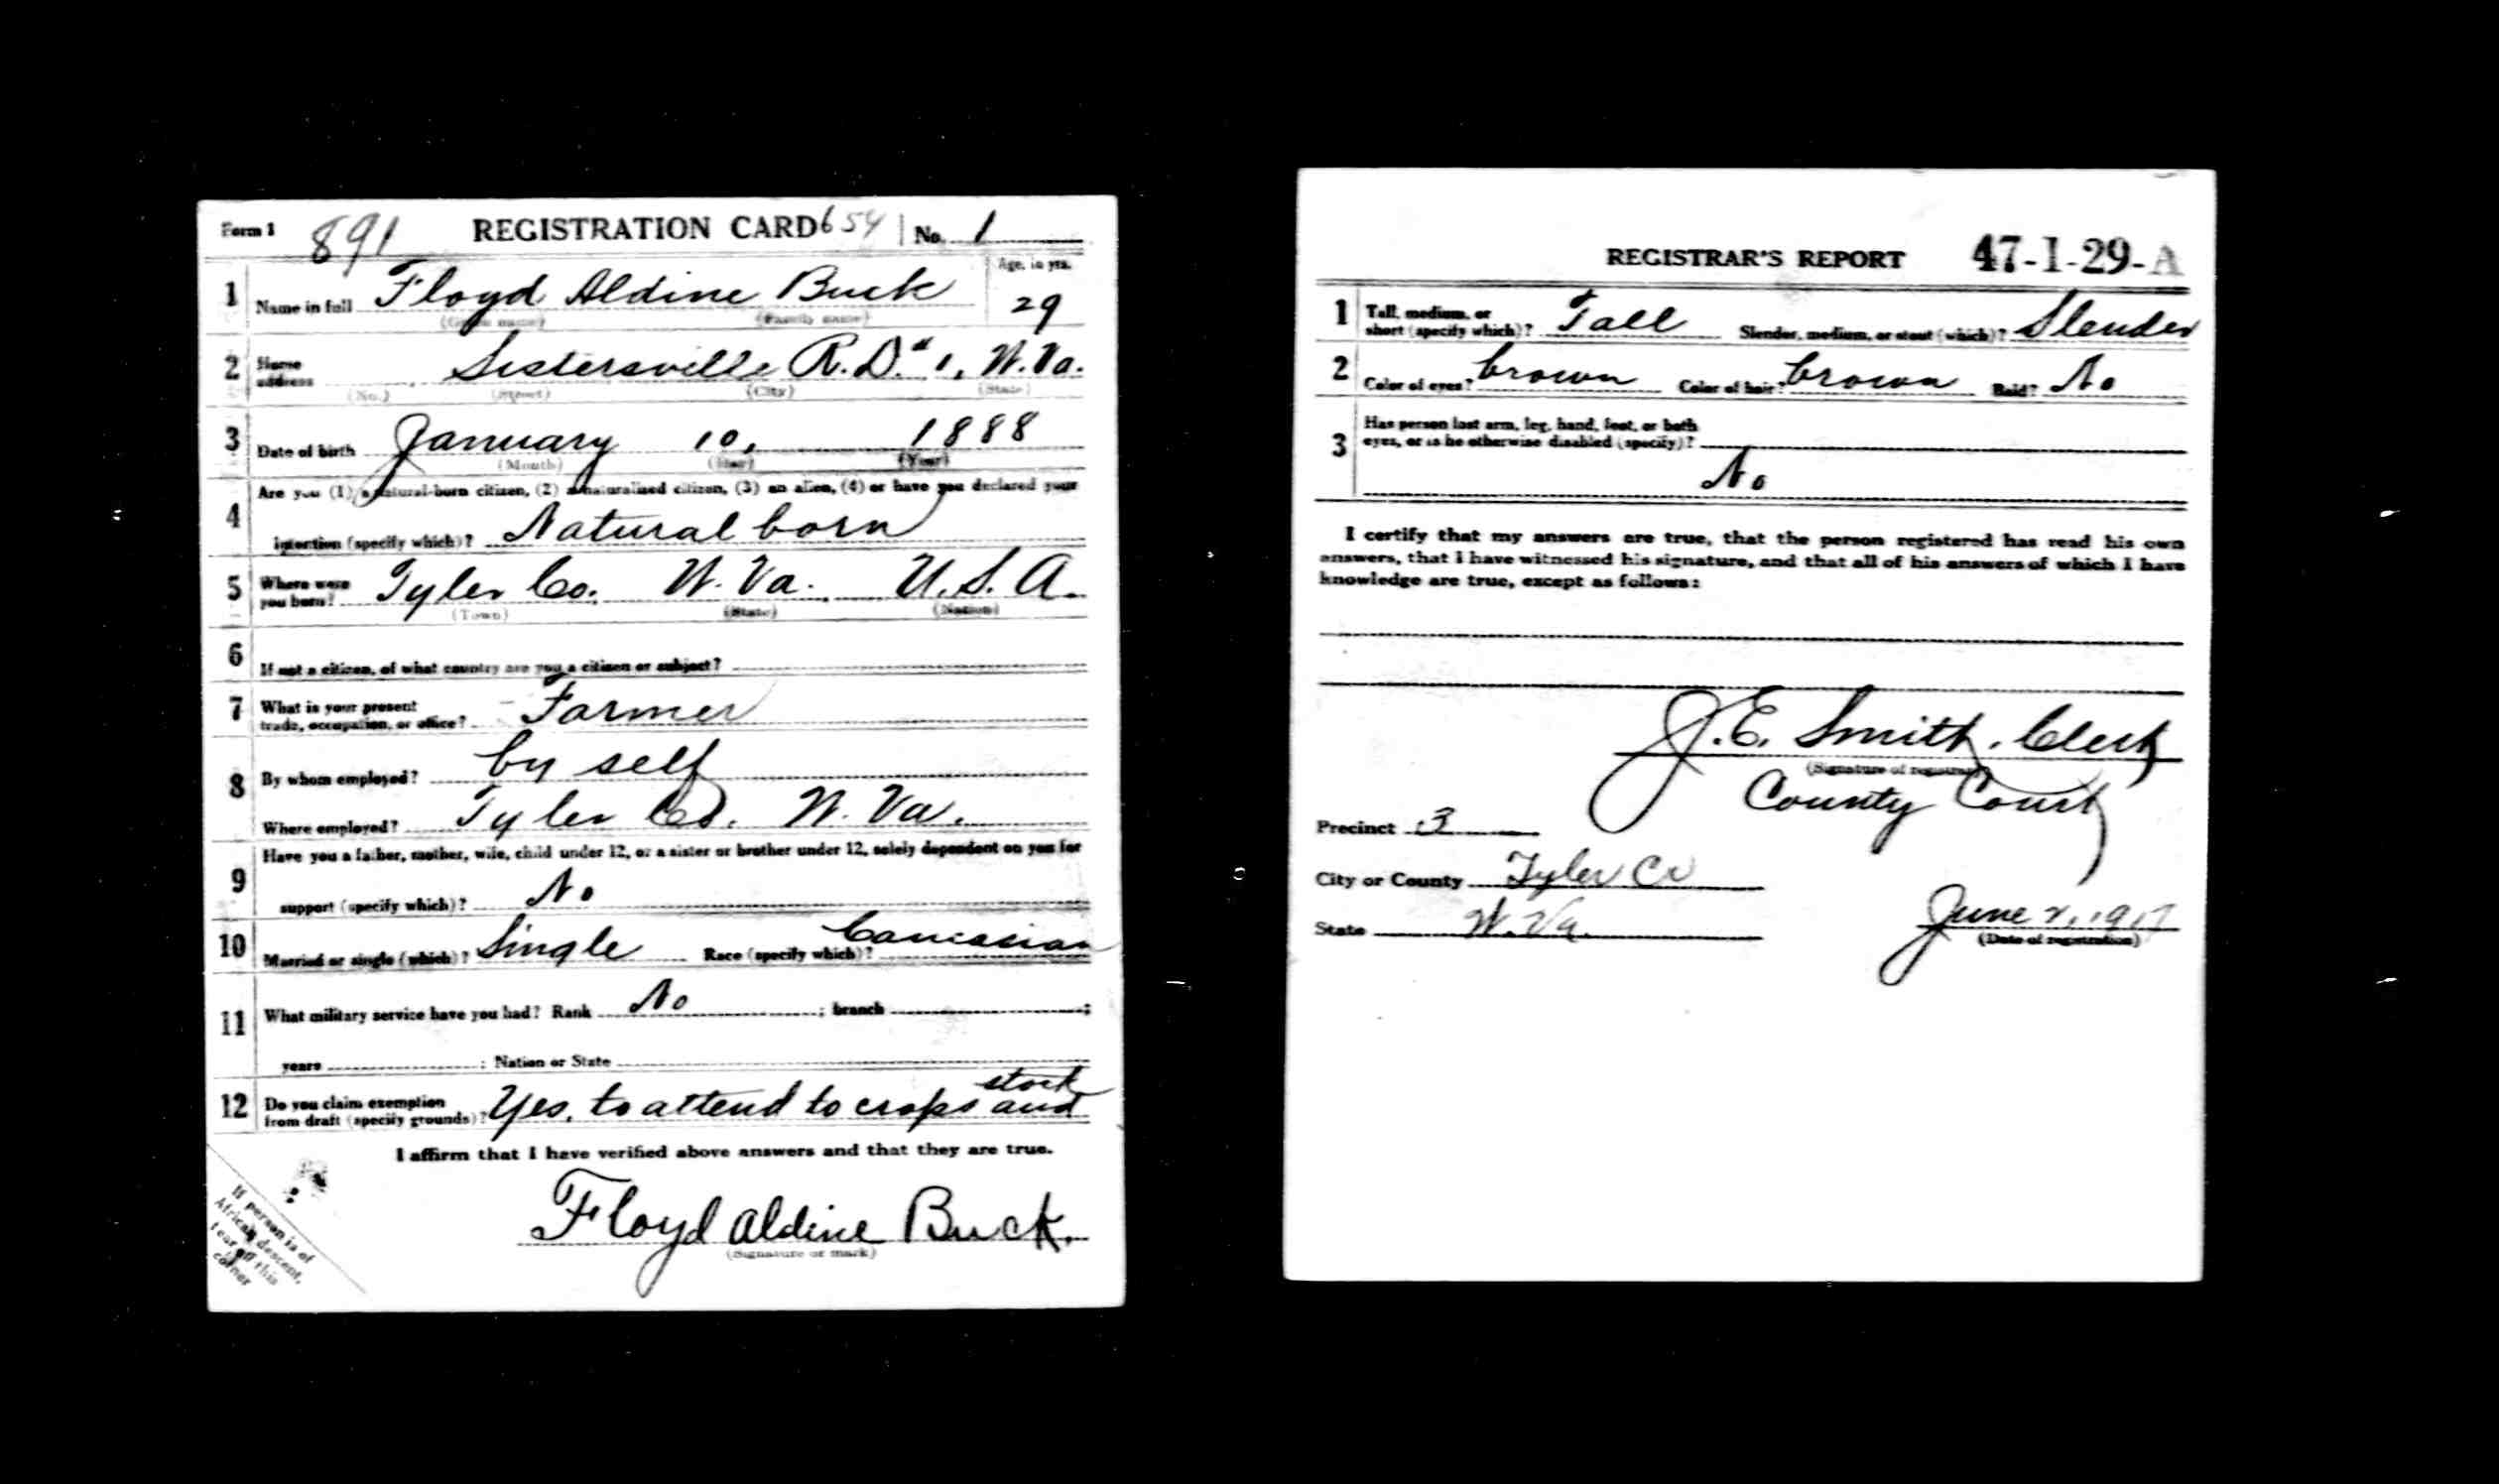 Form 1 891 REGISTRATION CARD 654 No. 1
1 Name in full Floyd Aldine Buck Age, in yrs. 29
(Given name) (Family name)
2 Home address Sistersville R.D. # 1, W. Va.
(No.) (Street) (City) (State)
3 Date of birth January 10, 1888
(Month) (Day) (Year)
4 Are you (1) a natural-born citizen, (2) a naturalized citizen, (3) an alien, (4) or have you declared your
intention (specify which)? Natural born
5 Where were you born? Tyler Co. W. Va. U. S. A.
(Town) (State) (Nation)
6 If not a citizen, of what country are you a citizen or subject?
7 What is your present trade, occupation, or office? Farmer
8 By whom employed? by self
Where employed? Tyler Co. W. Va.
9 Have you a father, mother, wife, child under 12, or a sister or brother under 12, solely dependent on you for
support (specify which)? No
10 Married or single (which)? Single Race (specify which)? Caucasian
11 What military service have you had? Rank No ; branch ;
years ; Nation or State
12 Do you claim exemption from draft (specify grounds)? Yes, to attend to crops and stock
I affirm that I have verified above answers and that they are true.
Floyd Aldine Buck.
(Signature or mark)
If person is of
African descent,
tear off this
corner
REGISTRAR'S REPORT 47-1-29-A
1 Tall, medium, or short (specify which)? Tall Slender, medium, or stout (which)? Slender
2 Color of eyes? brown Color of hair? brown Bald? No
3 Has person lost arm, leg, hand, foot, or both
eyes, or is he otherwise disabled (specify)?
No
I certify that my answers are true, that the person registered has read his own
answers, that I have witnessed his signature, and that all of his answers of which I have
knowledge are true, except as follows:
J. E. Smith, Clerk
(Signature of registrar)
County Court
Precinct 3
City or County Tyler Co
State W. Va. June 2, 1917
(Date of registration)